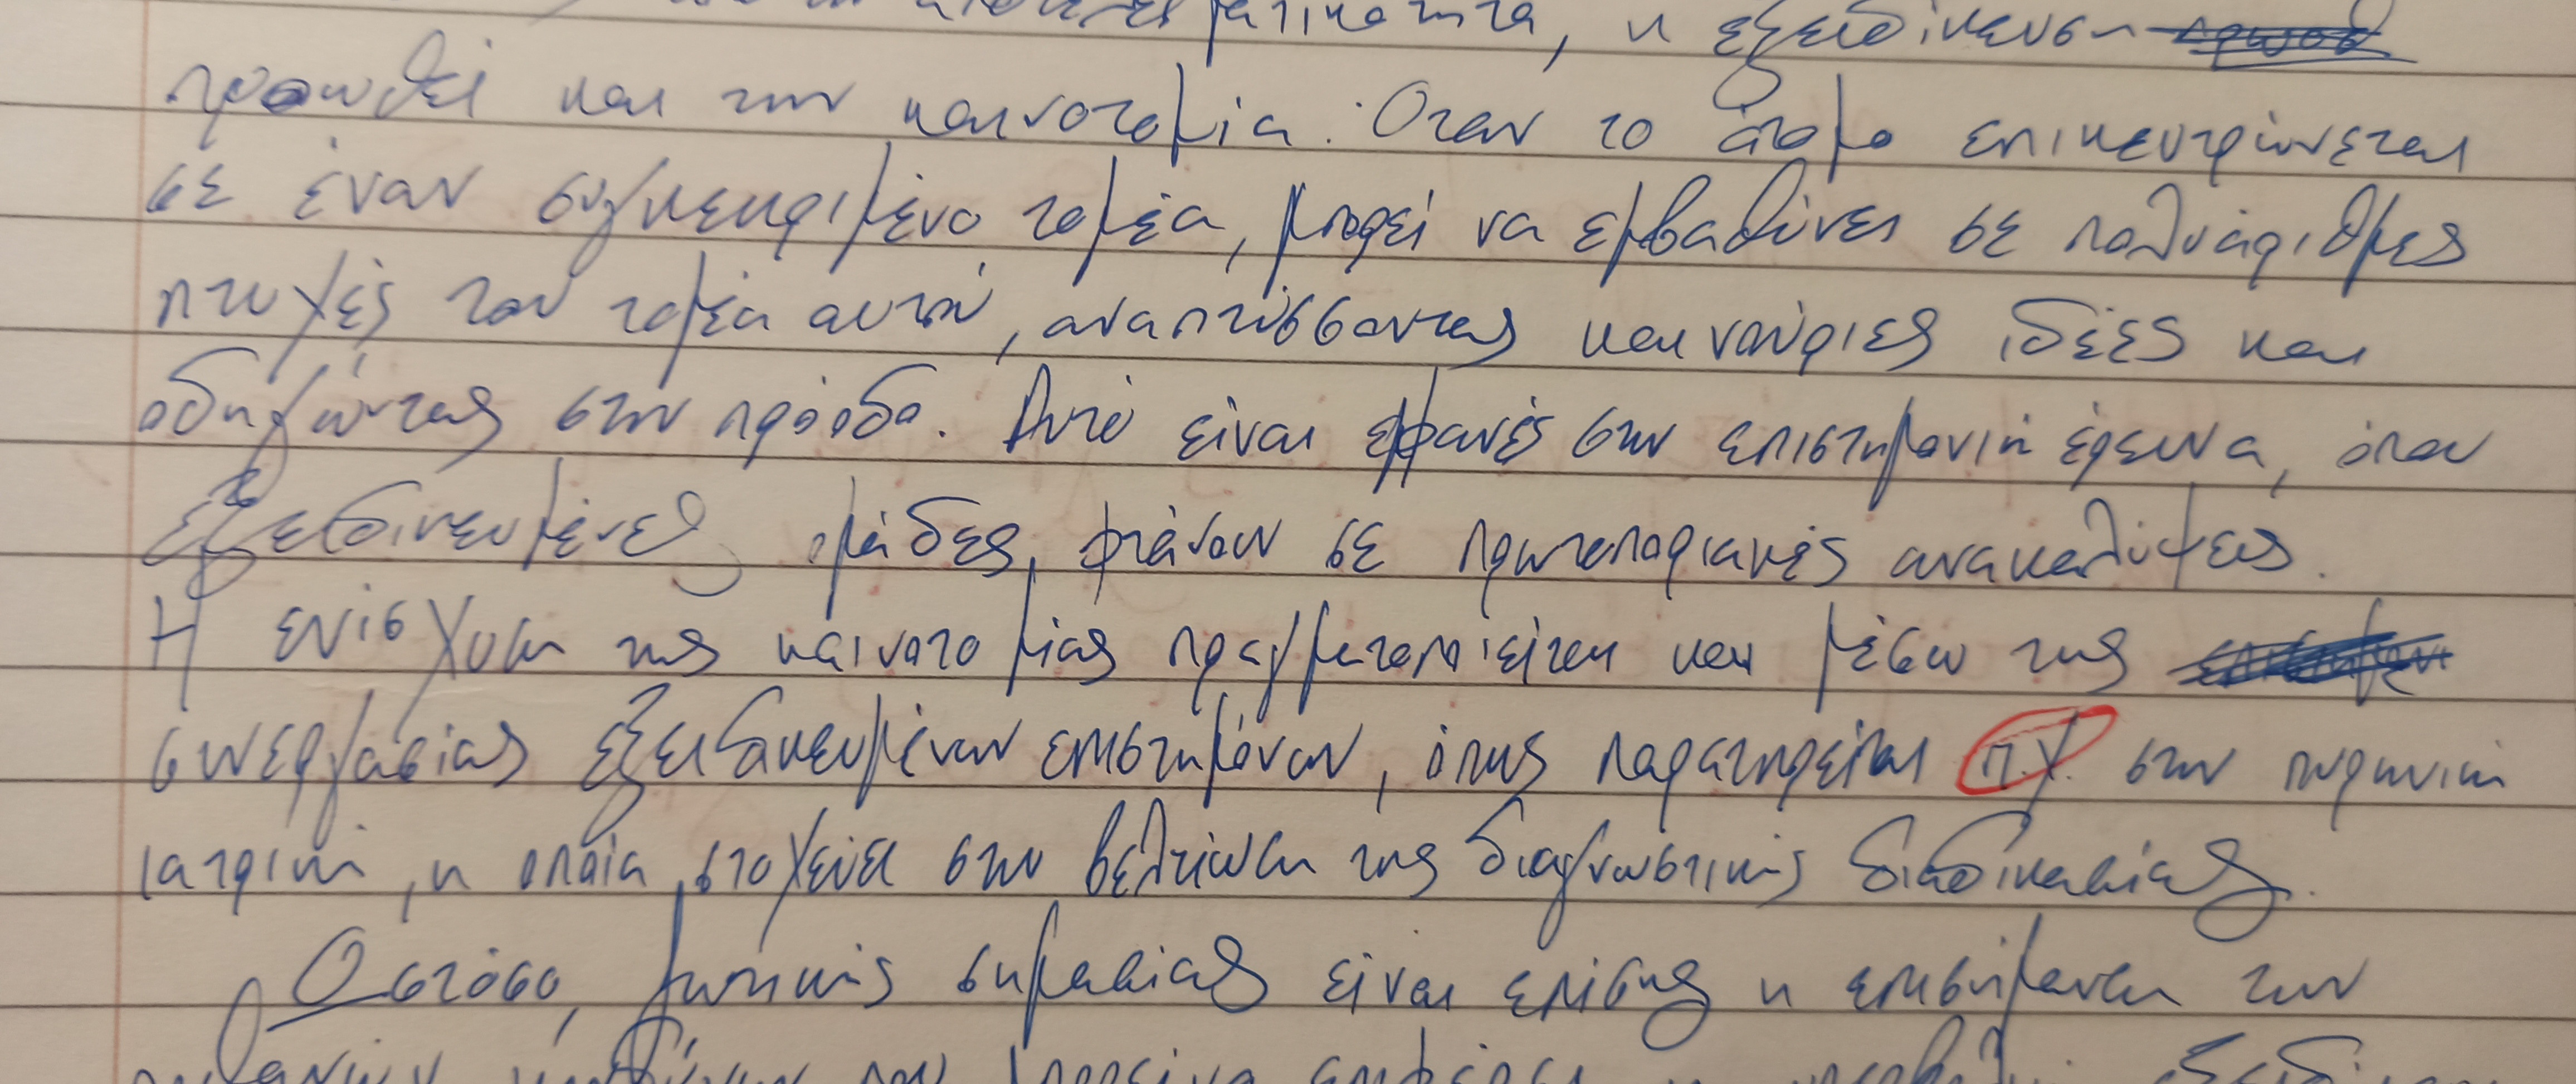 αποτελεσματικότητα, η εξειδίκευση
προωθεί και την καινοτομία. Όταν το άτομο επικεντρώνεται
σε έναν συγκεκριμένο τομέα, μπορεί να εμβαθύνει σε πολυάριθμες
πτυχές του τομέα αυτού, αναπτύσσοντας καινούριες ιδέες και
οδηγώντας στην πρόοδο. Αυτό είναι εμφανές στην επιστημονική έρευνα, όπου
εξειδικευμένες ομάδες, φτάνουν σε πρωτοποριακές ανακαλύψεις.
Η ενίσχυση της καινοτομίας πραγματοποιείται και μέσω της
συνεργασίας εξειδικευμένων επιστημόνων, όπως παρατηρείται π.χ. στην πυρηνική
ιατρική, η οποία στοχεύει στην βελτίωση της διαγνωστικής διαδικασίας.
Ωστόσο, ζωτικής σημασίας είναι επίσης η επισήμανση των
πιθανών κινδύνων που μπορεί να επιφέρει η υπερβολική